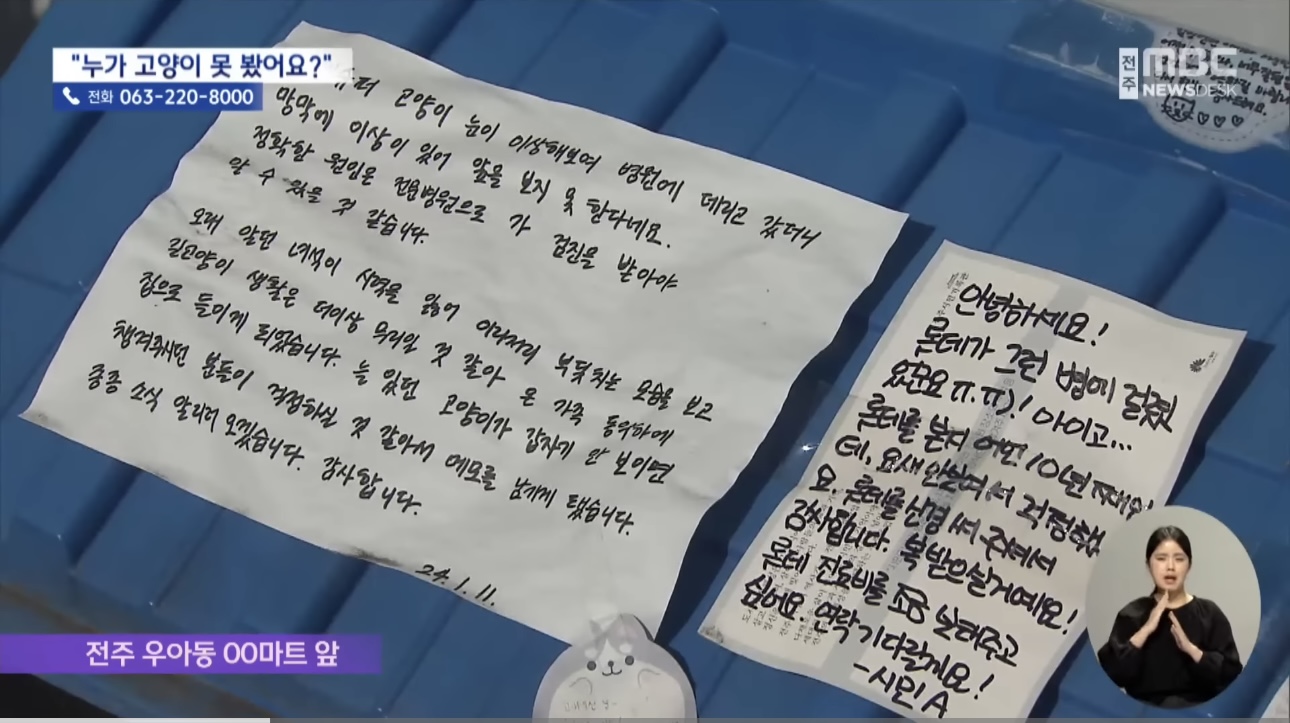 "누가 고양이 못 봤어요?"
전화 063-220-8000
전주 MBC
NEWSDESK
고양이 눈이 이상해보여 병원에 데리고 갔더니
망막에 이상이 있어 앞을 보지 못 한다네요.
정확한 원인은 전문병원으로 가 검진을 받아야
알 수 있을 것 같습니다.
오래 알던 녀석이 시력을 잃어 이리저리 부딪히는 모습을 보고
길고양이 생활은 더이상 무리일 것 같아 온 가족 동의하에
집으로 들이게 되었습니다. 늘 있던 고양이가 갑자기 안 보이면
챙겨주시던 분들이 걱정하실 것 같아서 메모를 남기게 됐습니다.
종종 소식 알리러 오겠습니다. 감사합니다.
24.1.11.
안녕하세요!
룬데가 그런 병에 걸렸
었군요 ㅠ.ㅠ)! 아이고...
룬데를 본지 어언 10년 째
데, 요새 안보여서 걱정했
요. 룬데를 신경 써 주셔서
감사합니다. 복 받으실거예요!
룬데 진료비를 조금 보태주고
싶어요. 연락 기다릴게요!
-시민 A
전주 우아동 OO마트 앞